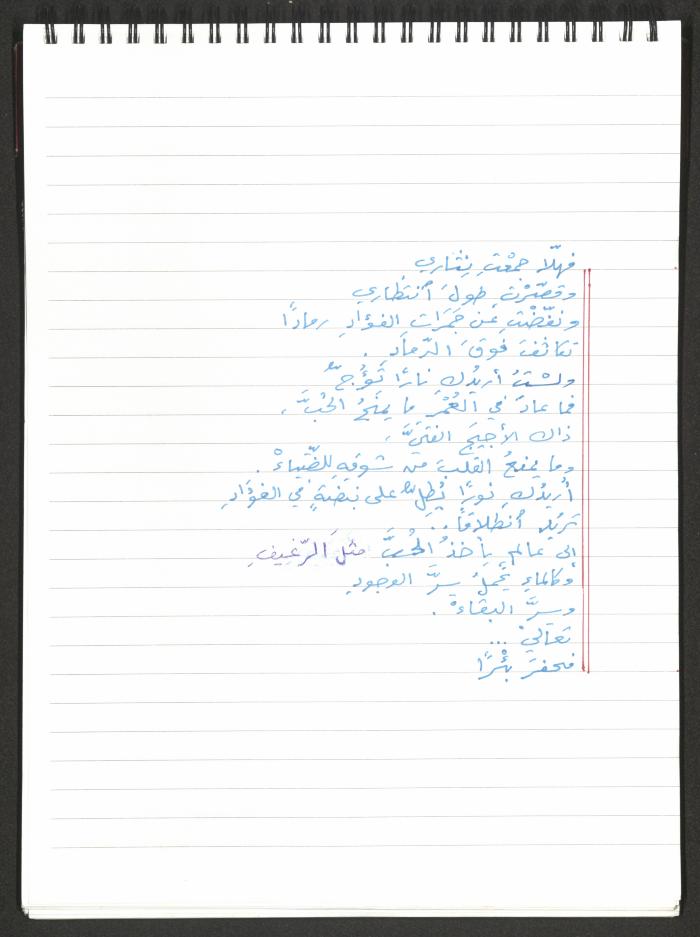 فهلّا جمعْتِ نِثاري
وقصّرْتِ طولَ ٱنتظاري
ونفّضْتِ عن جَمَراتِ الفؤادِ رمادًا
تكاثفَ فوقَ الرّمادِ .
ولستُ أريدُكِ نارًا تَؤُجّ
فما عادَ في العُمْرِ ما يمنَحُ الحُبَّ ،
ذاك الأجيجَ الفتيَّ ،
وما يمنعُ القلبَ من شوقِهِ للضّياءْ .
أريدُكِ نورًا يُطلّ على نبضةٍ في الفؤادِ
تريدُ ٱنطلاقًا ..
إلى عالمٍ يأخذُ الحُبَّ مثلَ الرّغيفِ
وكالماءِ يحملُ سِرَّ الوجودِ
وسِرَّ البقاءْ .
تعاليْ ...
فنحفرَ بئْرًا